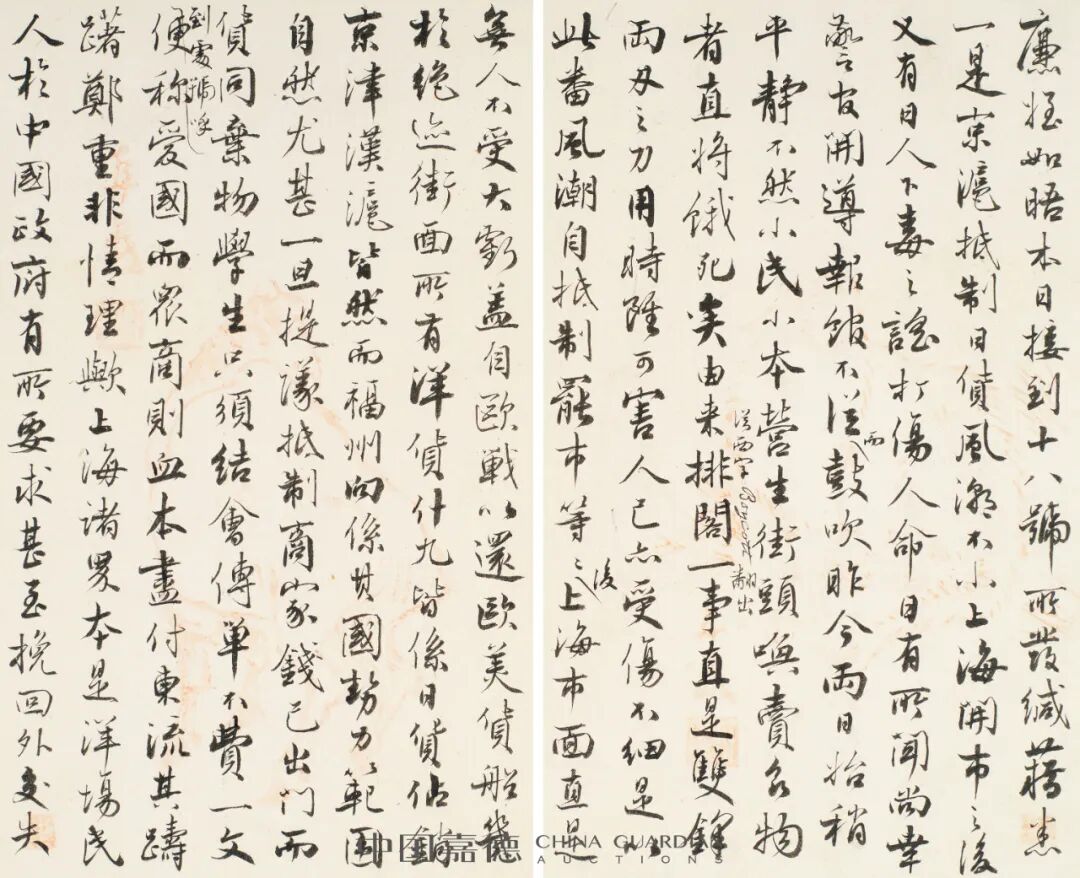 廉姪如晤本日接到十八號所發緘藉悉
一是京滬抵制日貨風潮不小上海開市之後
又有日人下毒之謠打傷人命日有所聞尚幸
警官開導報館不從而鼓吹昨今兩日始稍
平靜不然小民小本營生街頭喚賣各物
從西字Boycott翻出
者直將餓死矣由来排閣一事直是雙鋒
兩刃之刀用時雖可害人己亦受傷不細是以
此番風潮自抵制罷市等々後上海市面直是
無人不受大虧蓋自歐戰以還歐美貨船幾
於絕迹街面所有洋貨什九皆係日貨佔銷
京津漢滬皆然而福州向係其國勢力範圍
自然尤甚一旦提議抵制商家錢已出門而
貨同棄物學生只須結會傳單不費一文
到處號呼
便称愛國而眾商則血本盡付東流其躊
躇鄭重非情理歟上海諸界本是洋場民
人於中國政府有所要求甚至挽回外交失
中国嘉德 CHINA GUARDIAN
AUCTIONS